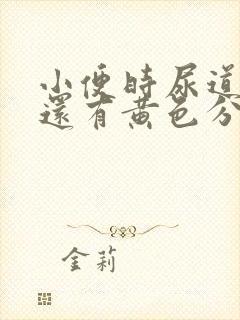 小便時尿道
還有黃色分
金莉